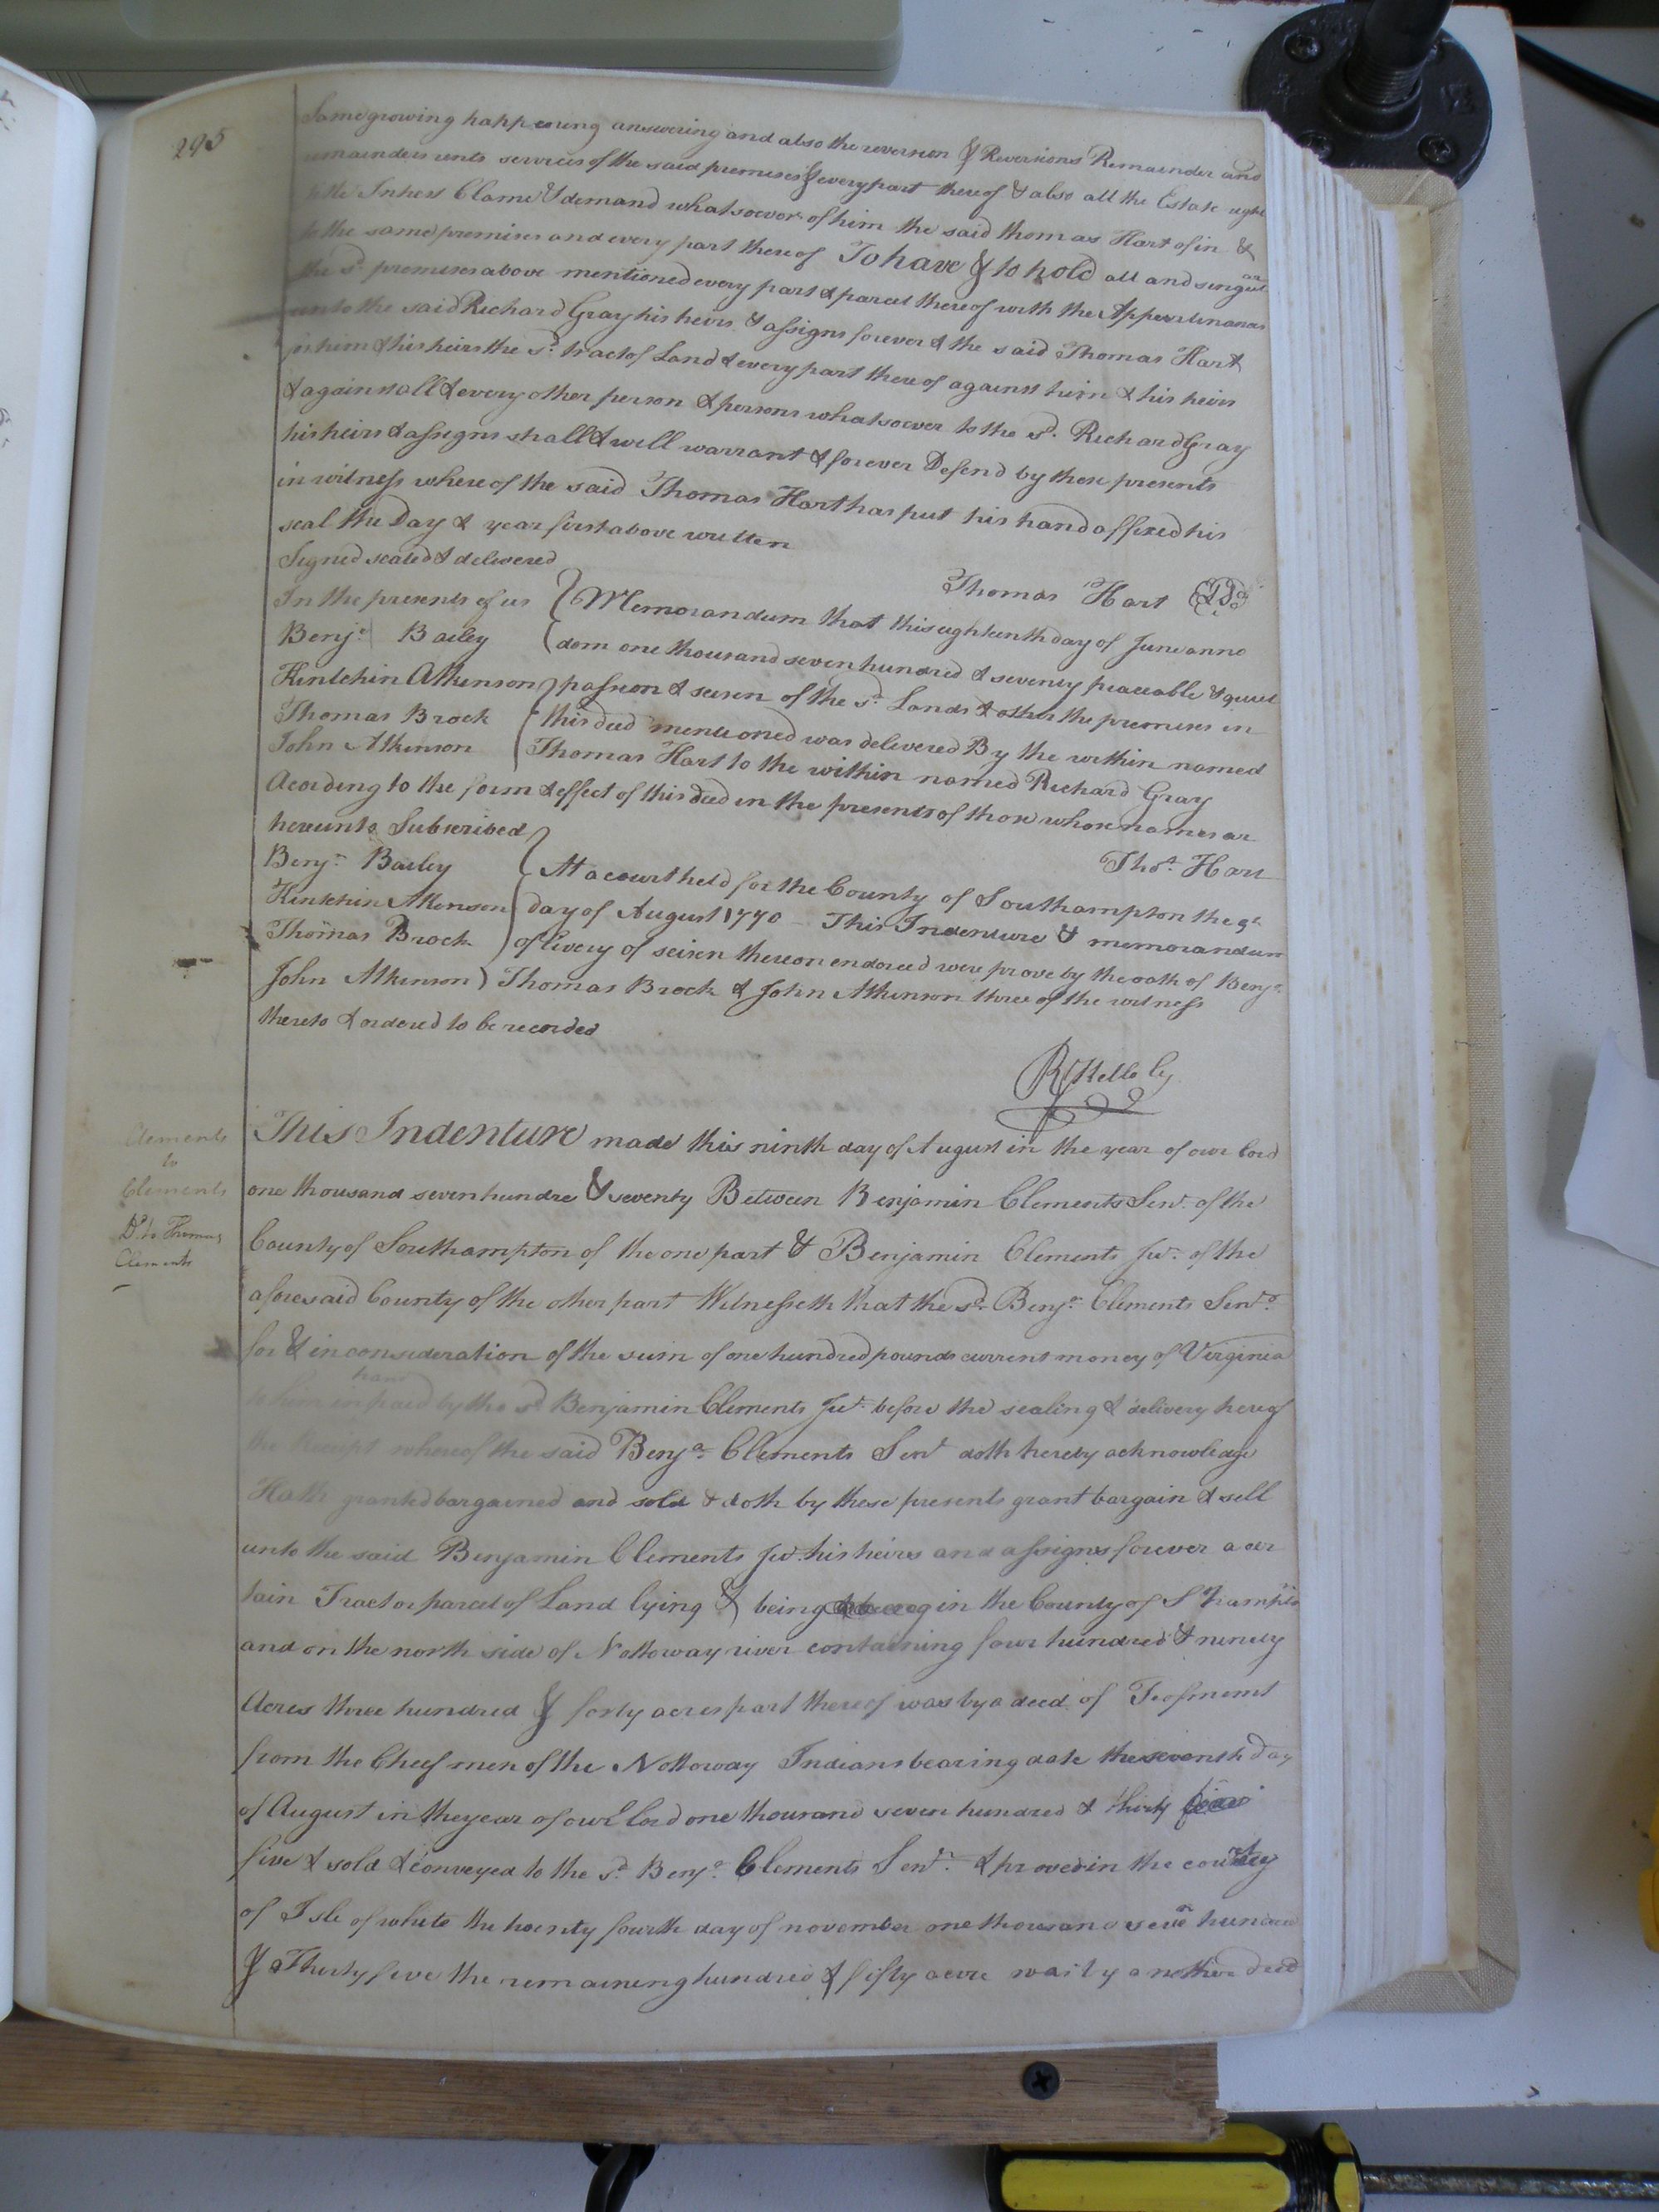 295
Same growing happening answering and also the reversion & Reversions Remainder and
remainders rents services of the said premises & every part thereof & also all the Estate right
title Inhers Clame & demand whatsoever of him the said thomas Hart of in &
to the same premises and every part thereof To have & to hold all and singular
the sd. premises above mentioned every part & parcel thereof with the Appurtinanas
unto the said Richard Gray his heirs & assigns forever & the said Thomas Hart
for him & his heirs the sd. tract of Land & every part thereof against him & his heirs
& against all & every other person & persons whatsoever to the sd. Richard Gray
his heirs & assigns shall & will warrant & forever Defend by these presents
in witness whereof the said Thomas Hart has put his hand affixed his
seal the Day & year first above written
Signed sealed & delivered
Thomas Hart
In the presents of us Memorandum that this eighteenth day of June anno
Benja. Bailey dom one thousand seven hundred & seventy peaceable & quiet
Hintchin Atkinson passion & seisen of the sd. Lands & other the premises in
Thomas Brock this deed mentioned was delivered By the within named
John Atkinson Thomas Hart to the within named Richard Gray
Acording to the form & effect of this deed in the presents of those whose names ar
hereunto Subscribed
Thos. Hart
Benja. Bailey At a court held for the County of Southampton the 9th
Hintchin Atkinson day of August 1770 This Indenture & memorandum
Thomas Brock of livery of seisen thereon endorced were prove by the oath of Benja.
John Atkinson Thomas Brock & John Atkinson three of the witness
thereto & ordered to be recorded
Clements
to
Clements
Do. to Thomas
Clements
This Indenture made this ninth day of August in the year of our lord
one thousand seven hundre & seventy Between Benjamin Clements Senr. of the
County of Southampton of the one part & Benjamin Clements Jur. of the
aforesaid County of the other part Witnesseth that the sd. Benja. Clements Senr.
for & in consideration of the sum of one hundred pounds current money of Virginia
to him in hand paid by the sd Benjamin Clements Jur. before the sealing & delivery hereof
the Receipt whereof the said Benja. Clements Senr doth hereby acknowledge
Hath granted bargained and sold & doth by these presents grant bargain & sell
unto the said Benjamin Clements Jur. his heires and assignes forever a cer
tain Tract or parcel of Land lying & being in the County of So hampto
and on the north side of Nottoway river containing four hundred & ninety
Acres three hundred & forty acres part thereof was by a deed of Feofment
from the Cheef men of the Nottoway Indians bearing date the seventh day
of August in the year of our lord one thousand seven hundred & thirty
five & sold & conveyed to the sd. Benja. Clements Senr. & proved in the county
of Isle of white the twenty fourth day of november one thousand seven hundred
& Thirty five the remaining hundred & fifty acre was by another deed